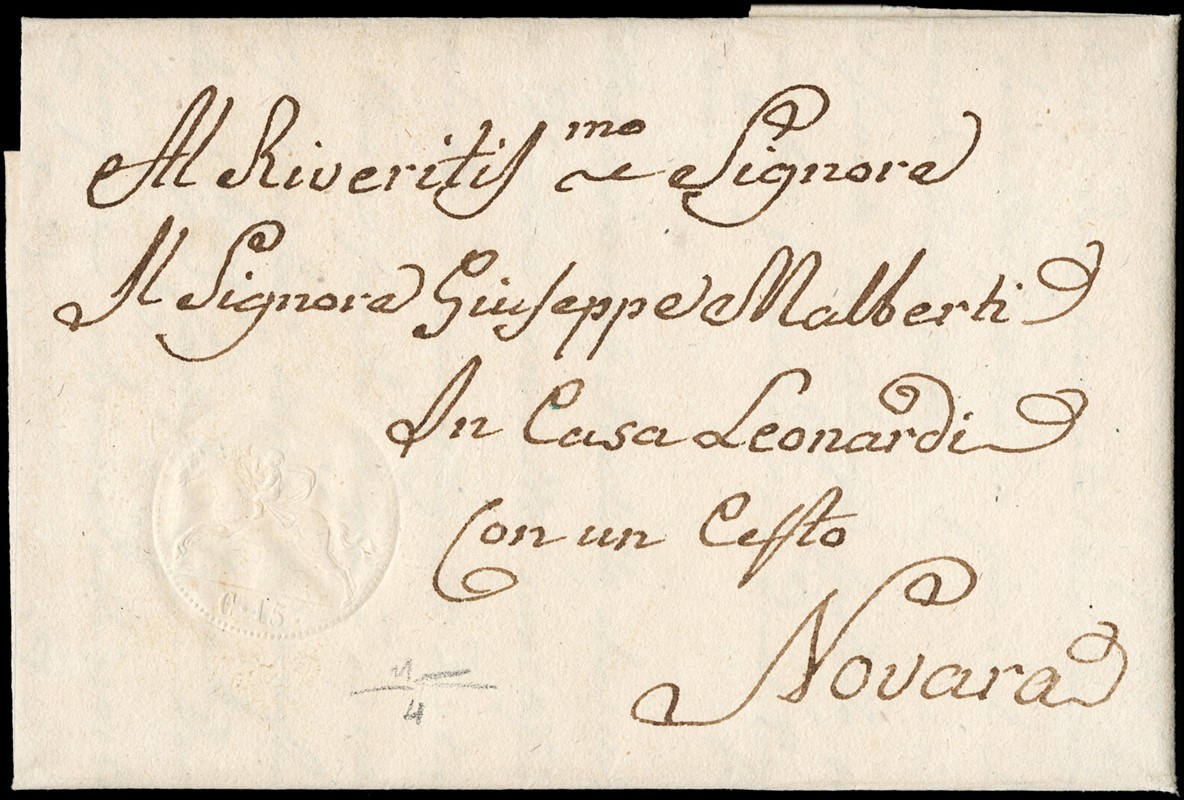 Al Riveritiſ.mo Signore
Il Signore Giuſeppe Malberti
In Casa Leonardi
Con un Ceſto
Novara
C. 15.
4